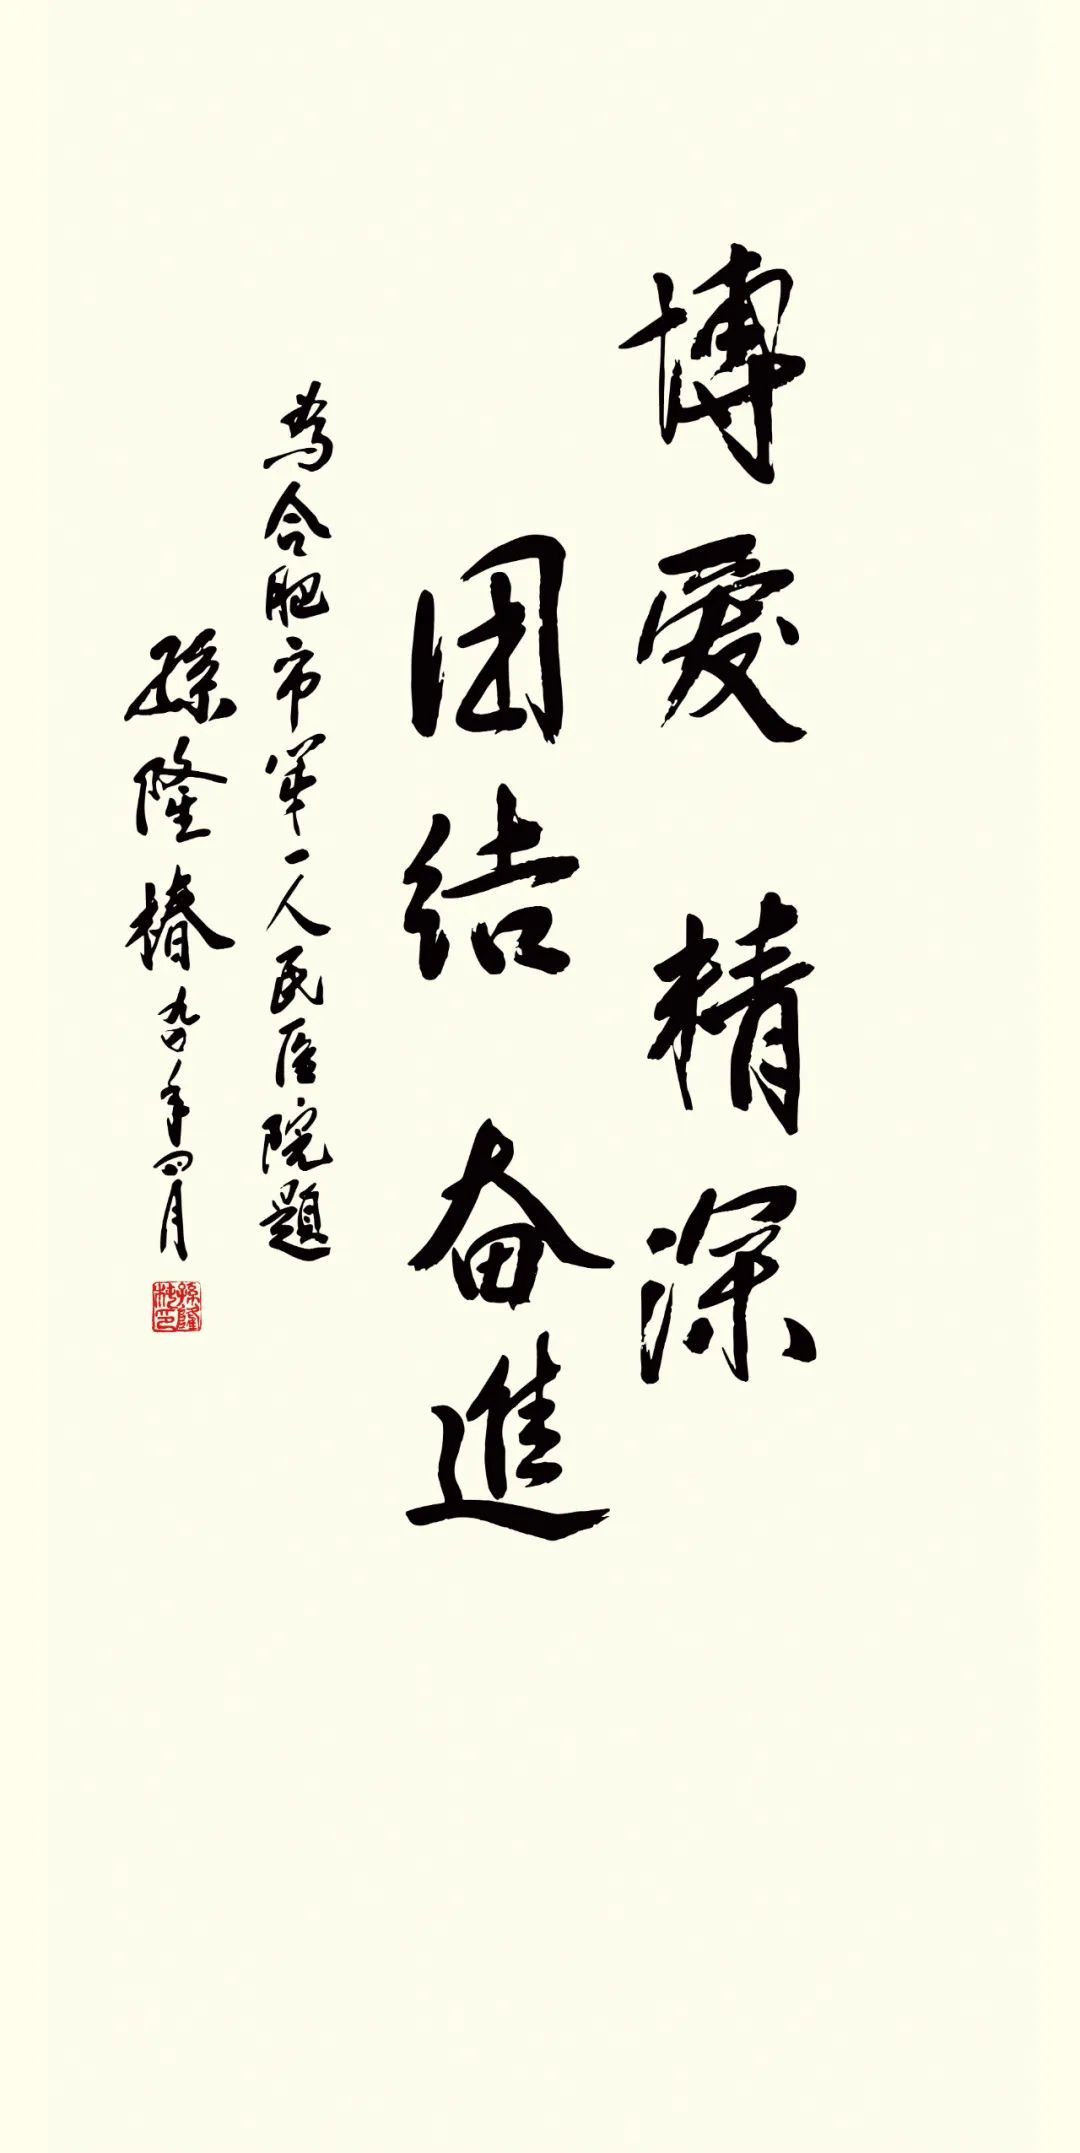 博爱 精深
团结 奋進
為合肥市第一人民医院題
孫隆椿 九年四月
孫隆椿印